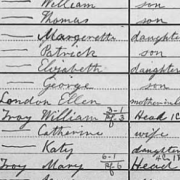 — William son
— Thomas son
— Margaretta daughter
— Patrick son
— Elizabeth daughter
— George son
London Ellen mother in l
Troy William Head
— Catherine wife
— Katy daughter
Troy Mary Head